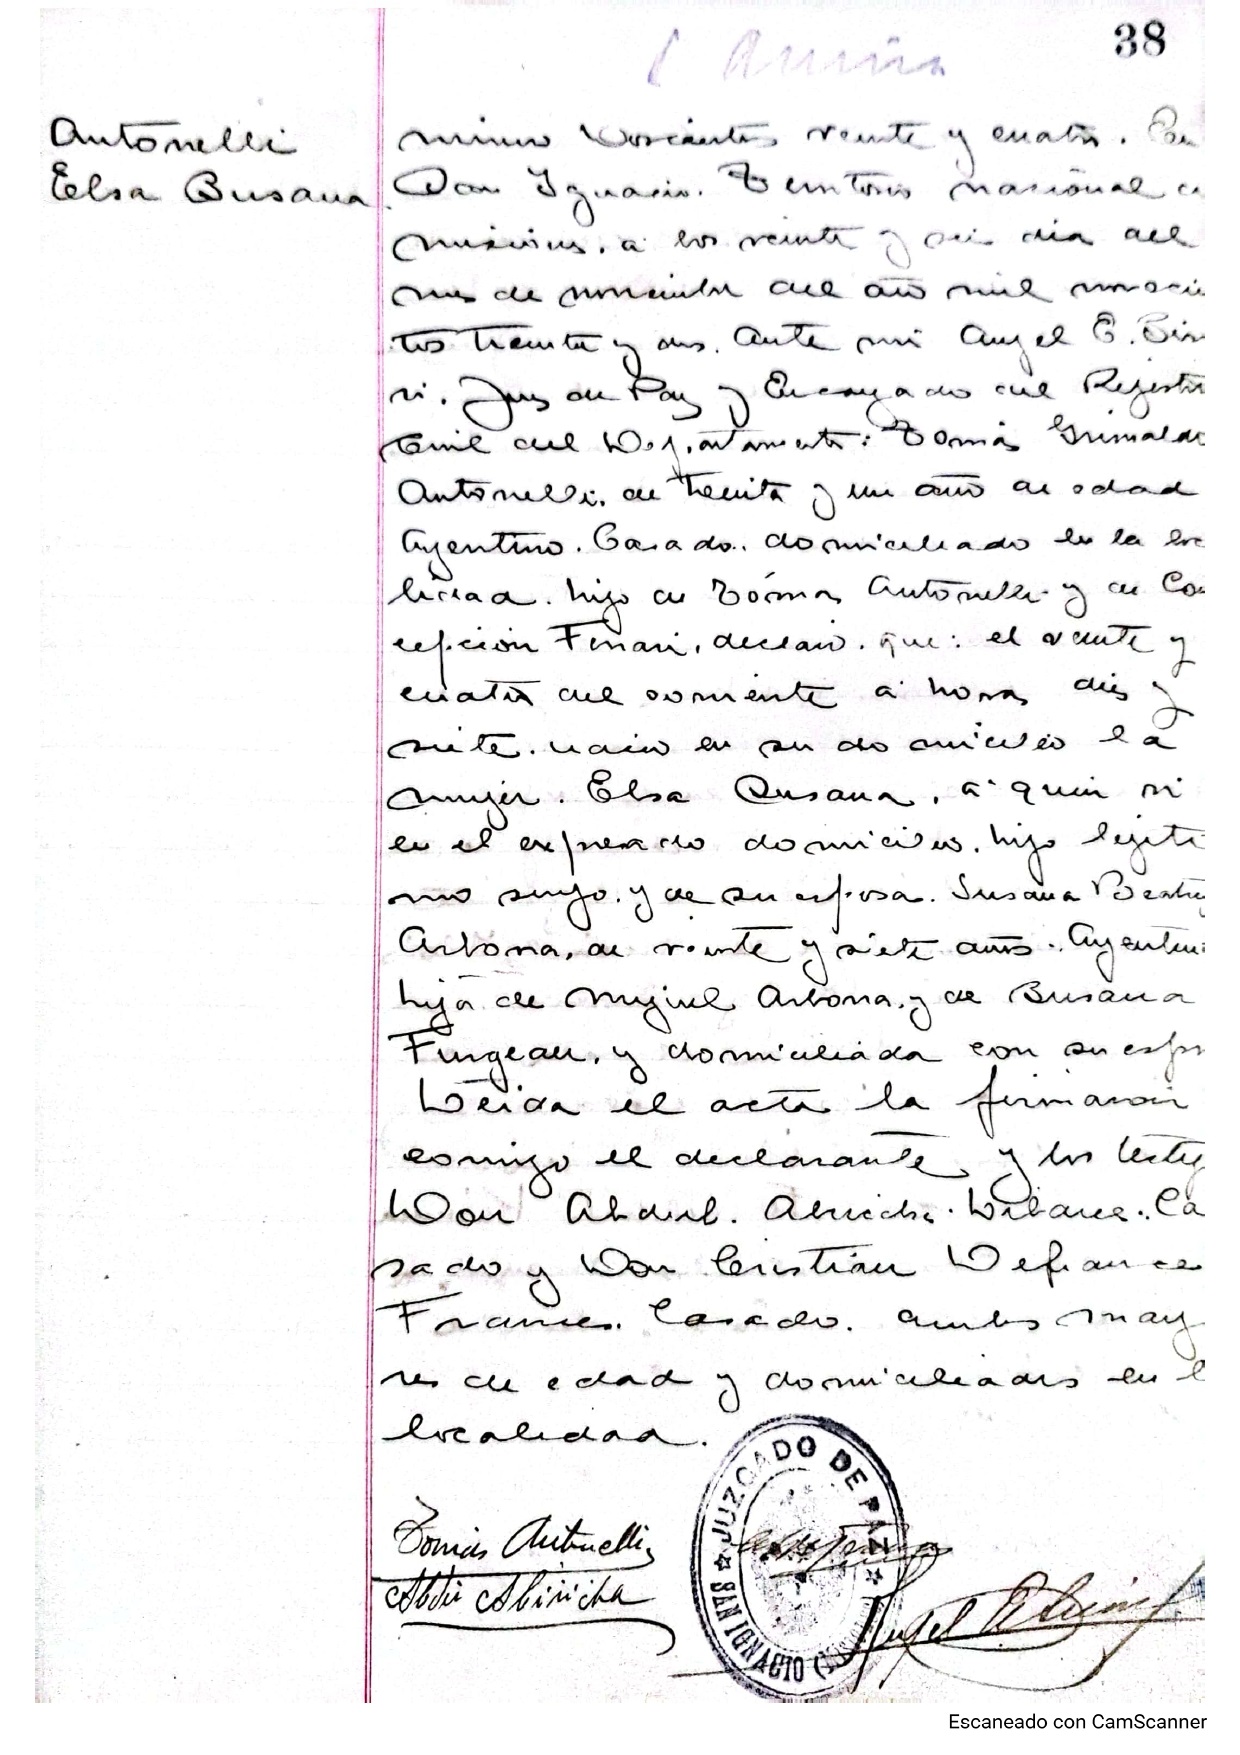 38
Antonelli
Elsa Susana
numero Doscientos veinte y cuatro. En
San Ignacio. Territorio nacional
misiones, a los veinte y seis dia del
mes de noviembre del año mil novecie
tos treinta y dos. Ante mi Angel E.
ri. Juez de Paz y Encargado del Rejistr
Civil del Departamento: Tomás Grimaldo
Antonelli, de treinta y un año de edad
Argentino. Casado. domiciliado en la lo
lidad. hijo de Tomás Antonelli y de Con
cepcion Ferrari, declaro. que: el veinte y
cuatro del corriente a horas dies y
siete. nacio en su domicilio la
mujer. Elsa Susana, a quien vi
en el expresado domicilio. hijo lejiti
mo suyo. y de su esposa. Susana Beatriz
Arbona, de veinte y siete años. Argentin
hija de Miguel Arbona, y de Susana
y domiciliada con su espo
Leida el acta la firmaron
comigo el declarante y los testig
Don Abdul. Libanes. Ca
sado y Don Cristian Defrance
Frances. Casado. ambos mayo
res de edad y domiciliados en l
localidad.
JUZGADO DE PAZ
SAN IGNACIO
Tomás Antonelli
Abdu Abiricha
Angel E.
Escaneado con CamScanner